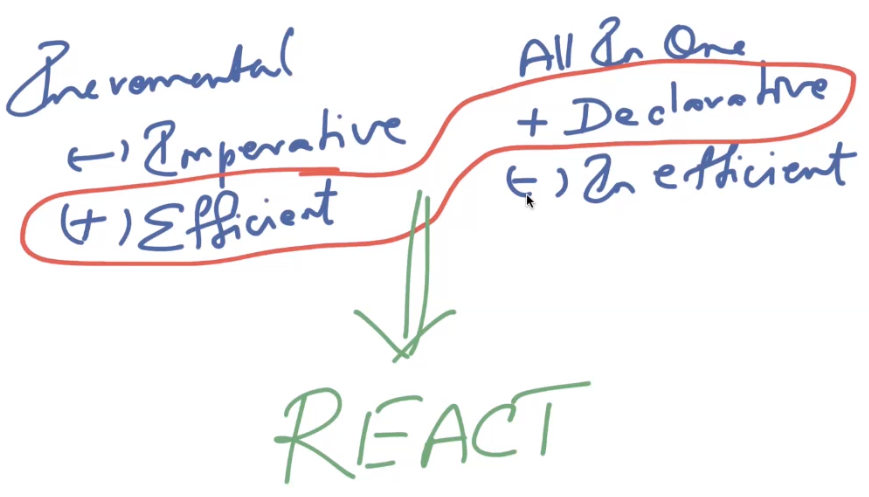 Incremental
(-) Imperative
(+) Efficient
All In One
+ Declarative
(-) In efficient
REACT